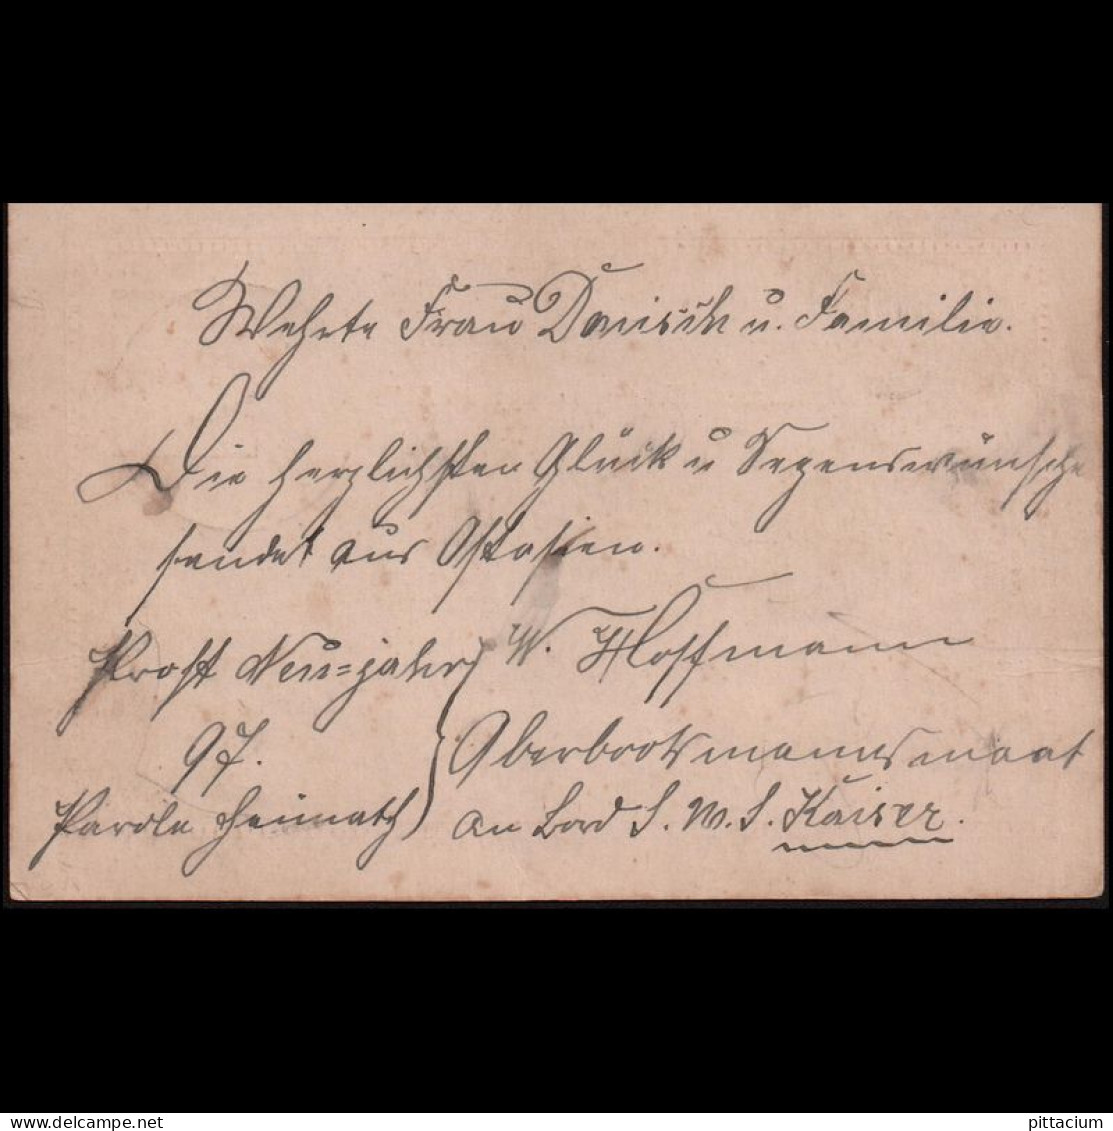 Wehrte Frau Danisch u. Familie.
Die herzlichsten Glück u Segenswünsche
sendet aus Ostasien.
Prost Neu=jahr
97.
Parole Heimath
W. Hoffmann
Oberbootsmannsmaat
an Bord S. M. S. Kaiser.
delcampe.net
pittacium